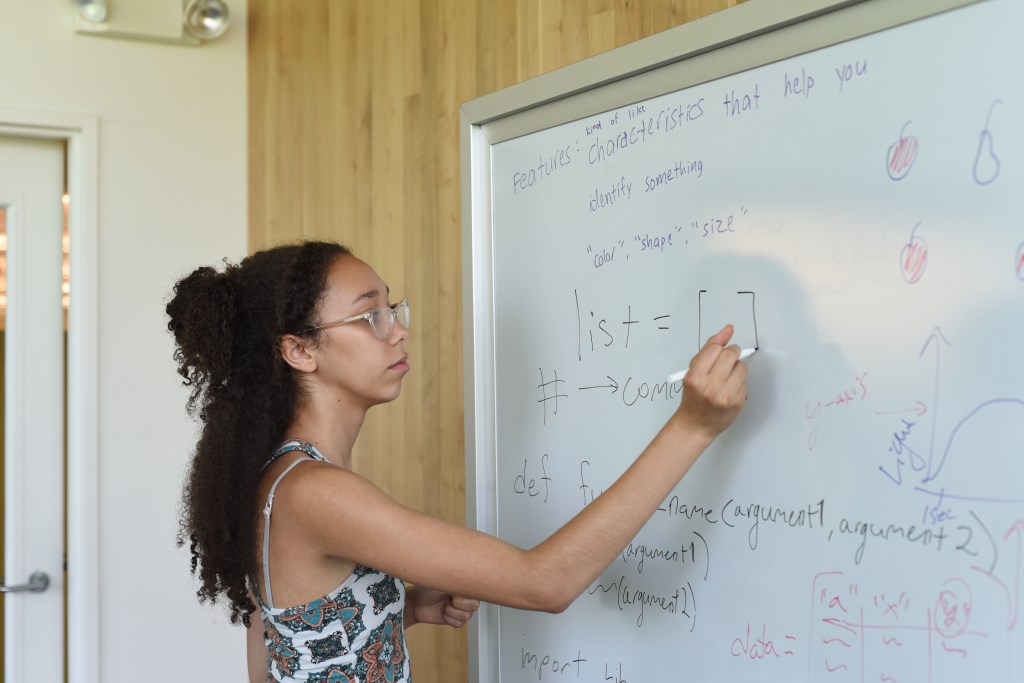 Features: kind of like characteristics that help you
identify something
"color", "shape", "size"
list = [ ]
# → comm
def fu -name (argument1, argument2)
(argument1)
(argument2)
mport lib
y-axis
Light
1sec
data = "a" "x" "y"